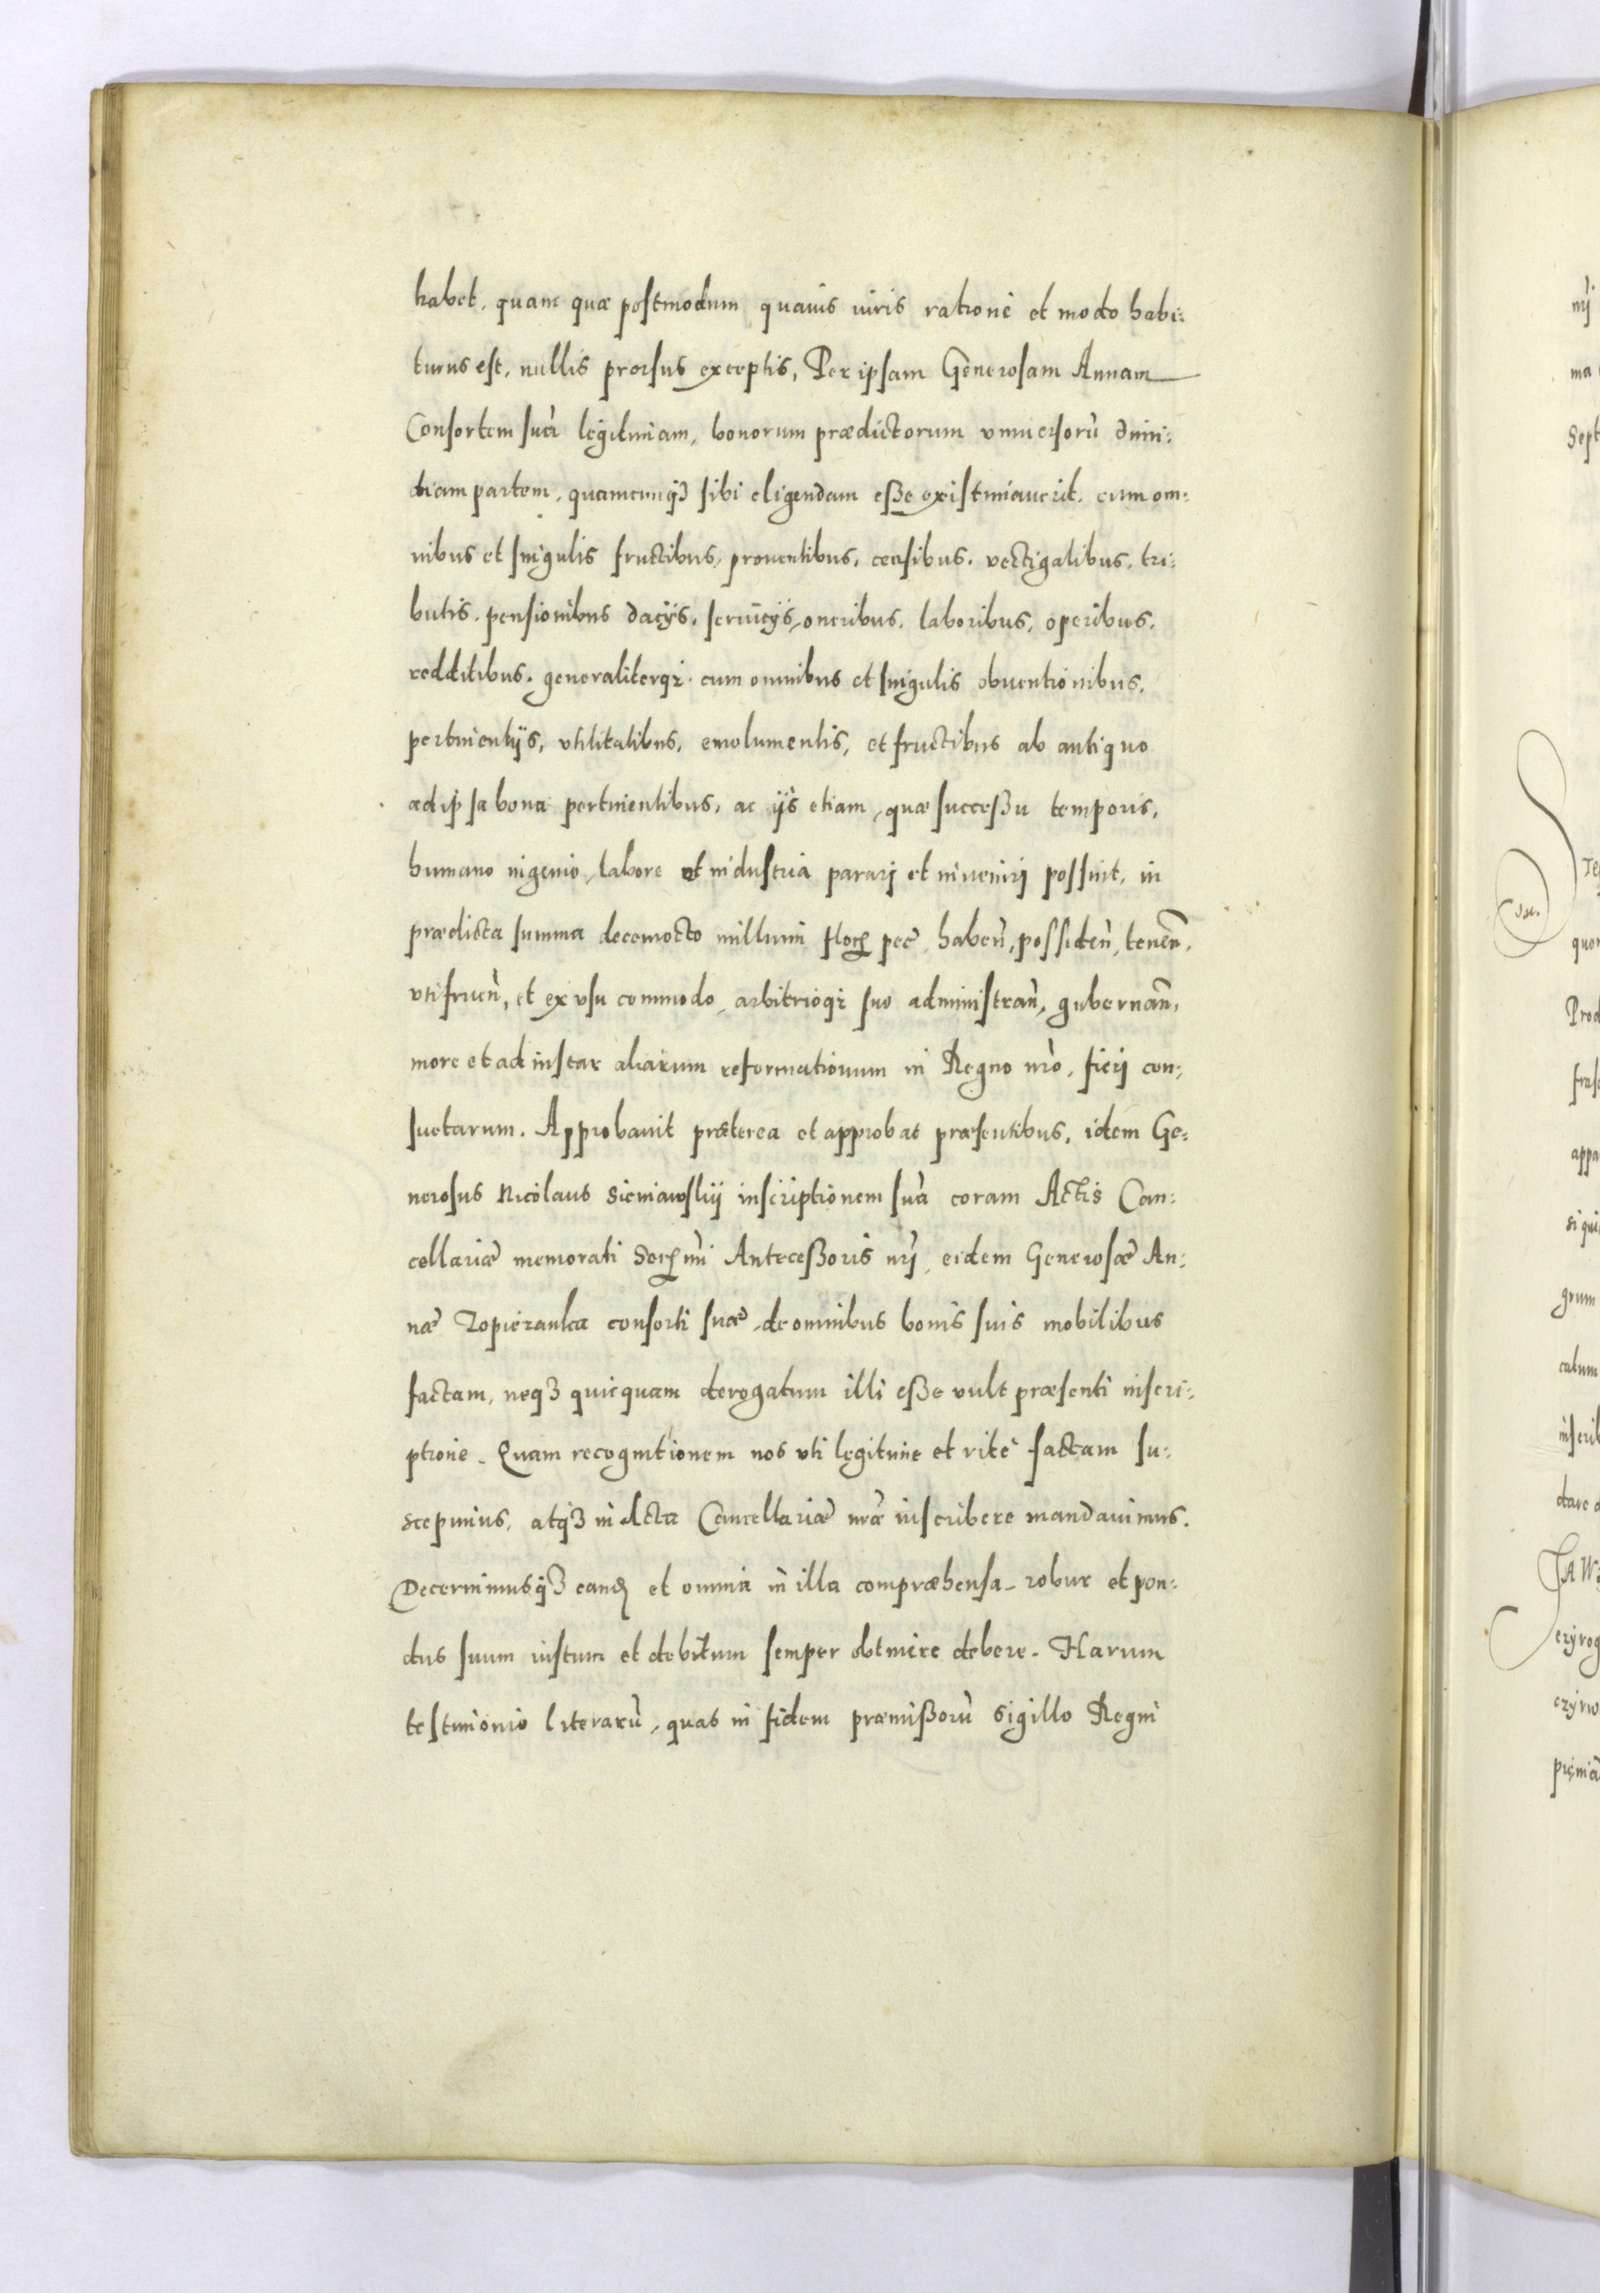 habet, quam quæ postmodum quauis iuris ratione et modo habi:
turus est, nullis prorsus exceptis, Per ipsam Generosam Annam
Consortem suã legitimam, bonorum prædictorum vniuersorũ dimi:
diam partem, quamcunqꝫ sibi eligendam eße existimauerit, cum om:
nibus et singulis fructibus, prouentibus, censibus, vectigalibus, tri:
butis, pensionibus dacijs, seruicijs, oneribus, laboribus, operibus,
redditibus, generaliterqꝫ cum omnibus et singulis obuentionibus,
pertinentijs, vtilitatibus, emolumentis, et fructibus ab antiquo
ad ipsa bona pertinentibus, ac ijs etiam, quæ succeßu temporis,
humano ingenio, labore et industria parari et inueniri possint, in
prædicta summa decemocto millium floꝝ pec̃, habeñ, possideñ, teneñ,
vtifrueñ, et ex vsu commodo, arbitrioqꝫ suo administrañ, gubernañ,
more et ad instar aliarum reformationum in Regno nr̃o, fieri con:
suetarum. Approbauit præterea et approbat præsentibus, idem Ge:
nerosus Nicolaus Sieniawskij inscriptionem suã coram Actis Can:
cellariæ memorati Serᵐⁱ Anteceßoris nr̃j, eidem Generosæ An:
næ Zopieranka consorti suæ, de omnibus bonis suis mobilibus
factam, neqꝫ quicquam derogatum illi eße vult præsenti inscri:
ptione. Quam recognitionem nos vti legitime et rite factam su:
scepimus, atqꝫ in Acta Cancellariæ nr̃æ inscribere mandauimus.
Decernimusqꝫ eandꝫ et omnia in illa compræhensa robur et pon:
dus suum iustum et debitum semper obtinere debere. Harum
testimonio literarũ, quas in fidem præmißorũ sigillo Regni